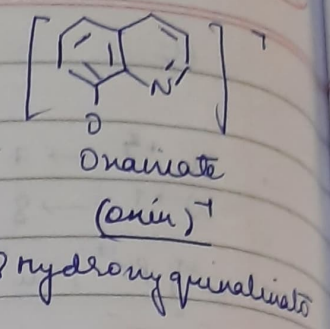 -1
N
O
Oxinate
(oxin)⁻¹
8 hydroxyquinolinato